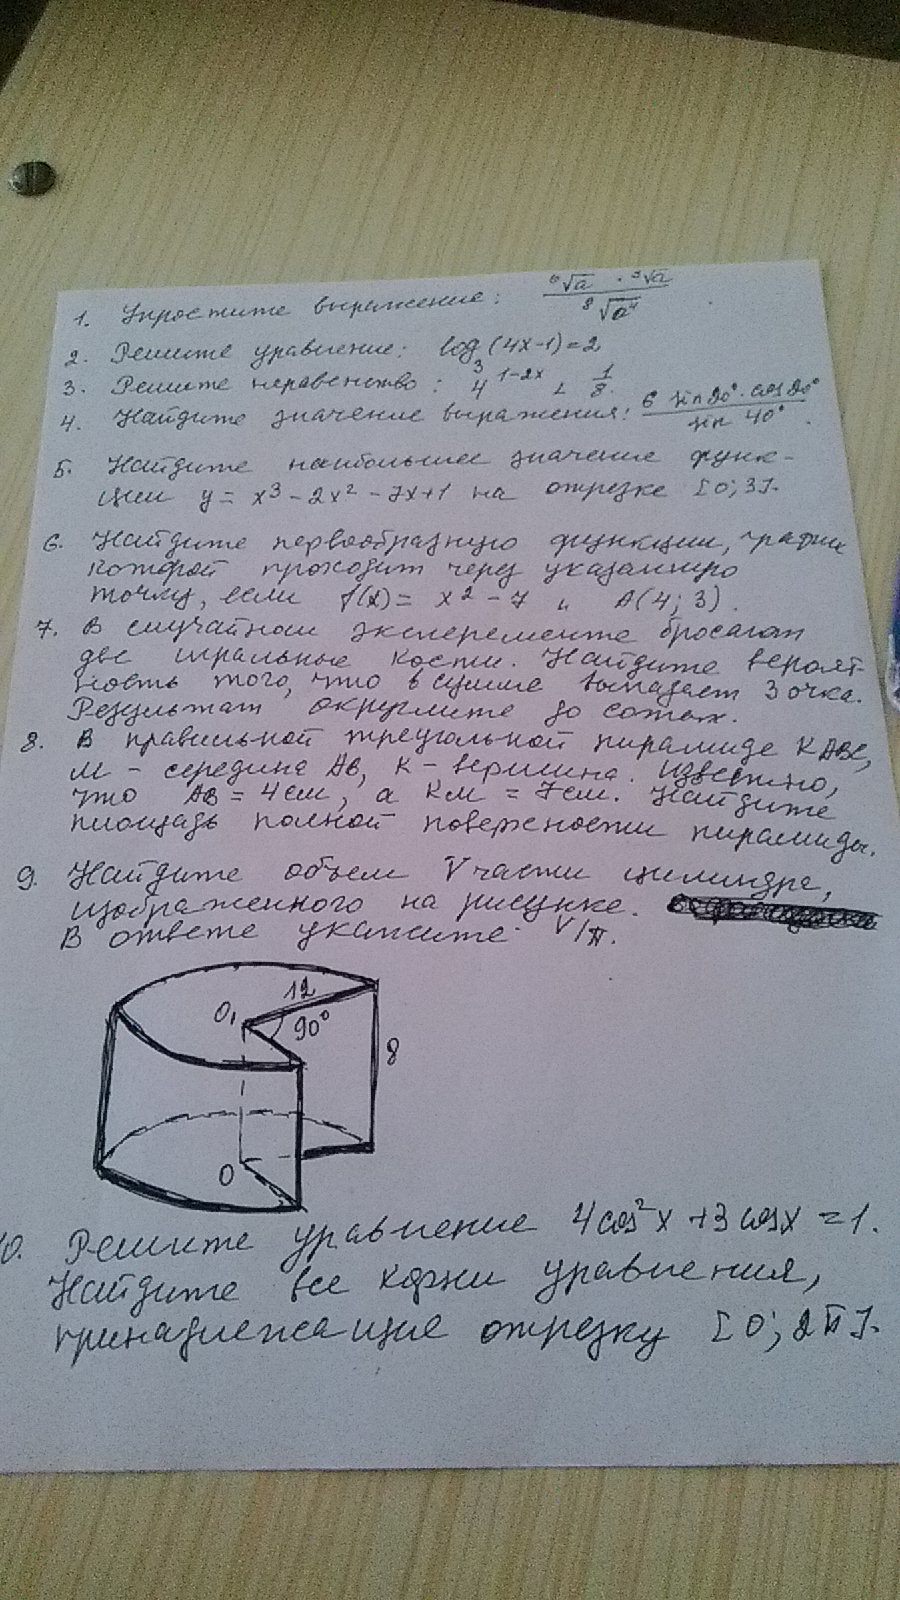 1. Упростите выражение: ⁶√a · ³√a / ⁸√a⁴
2. Решите уравнение: log₃(4x-1)=2
3. Решите неравенство: 4^(1-2x) < 1/8.
4. Найдите значение выражения: 6 sin20°·cos20° / sin 40°.
5. Найдите наибольшее значение функ-
ции y = x³ - 2x² - 7x+1 на отрезке [0; 3].
6. Найдите первообразную функции, график
которой проходит через указанную
точку, если f(x) = x² - 7 и A(4; 3).
7. В случайном эксперементе бросают
две игральные кости. Найдите вероят-
ность того, что в сумме выпадет 3 очка.
Результат округлите до сотых.
8. В правильной треугольной пирамиде KABC,
М - середина AB, K - вершина. Известно,
что AB = 4см, а KM = 7см. Найдите
площадь полной поверхности пирамиды.
9. Найдите объем V части цилиндра,
изображенного на рисунке.
В ответе укажите V/π.
12
O₁
90°
8
O
10. Решите уравнение 4cos²x +3cosx =1.
Найдите все корни уравнения,
принадлежащие отрезку [0; 2π].